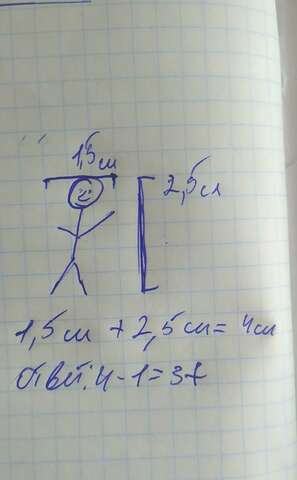 1,5 см
2,5 см
1,5 см + 2,5 см = 4 см
Ответ: 4-1=3